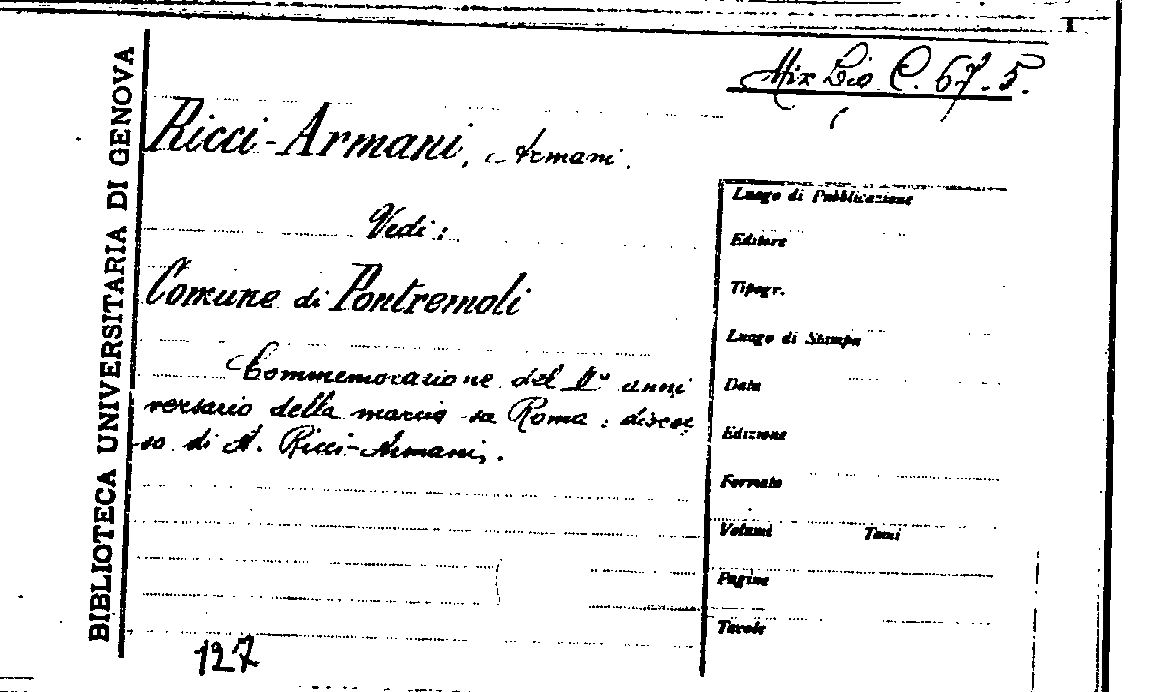 BIBLIOTECA UNIVERSITARIA DI GENOVA
C. 67. 5.
Ricci-Armani, Armani.
Vedi:
Comune di Pontremoli
Commemorazione del IIº anni
versario della marcia su Roma: discor
so di A. Ricci-Armani.
Luogo di Pubblicazione
Editore
Tipogr.
Luogo di Stampa
Data
Edizione
Formato
Volumi Tomi
Pagine
Tavole
127